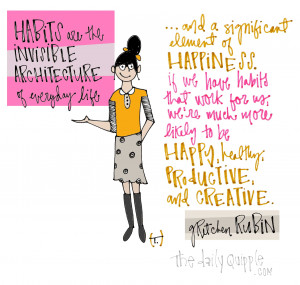 HABITS are the
INVISIBLE
ARCHITECTURE
of everyday life
...and a significant
element of
HAPPINESS.
if we have habits
that work for us,
we're much more
likely to be
HAPPY, healthy,
PRODUCTIVE,
and CREATIVE.
gRetchen RUBIN
the daily Quipple
.com